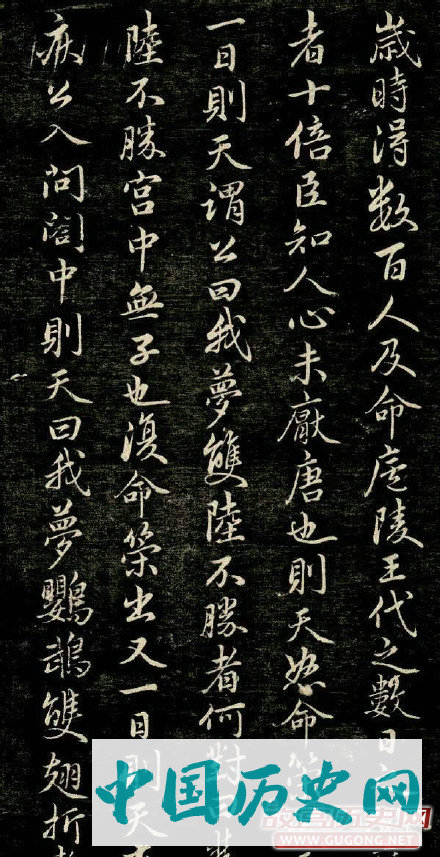 歲時得數百人及命廬陵王代之數日
者十倍臣知人心未厭唐也則天怒命
一日則天謂公曰我夢雙陸不勝者何對
陸不勝宮中無子也復命策出又一日則天
疾公入問閤中則天曰我夢鸚鵡雙翅折
中国历史网
WWW.GUGONG.NET